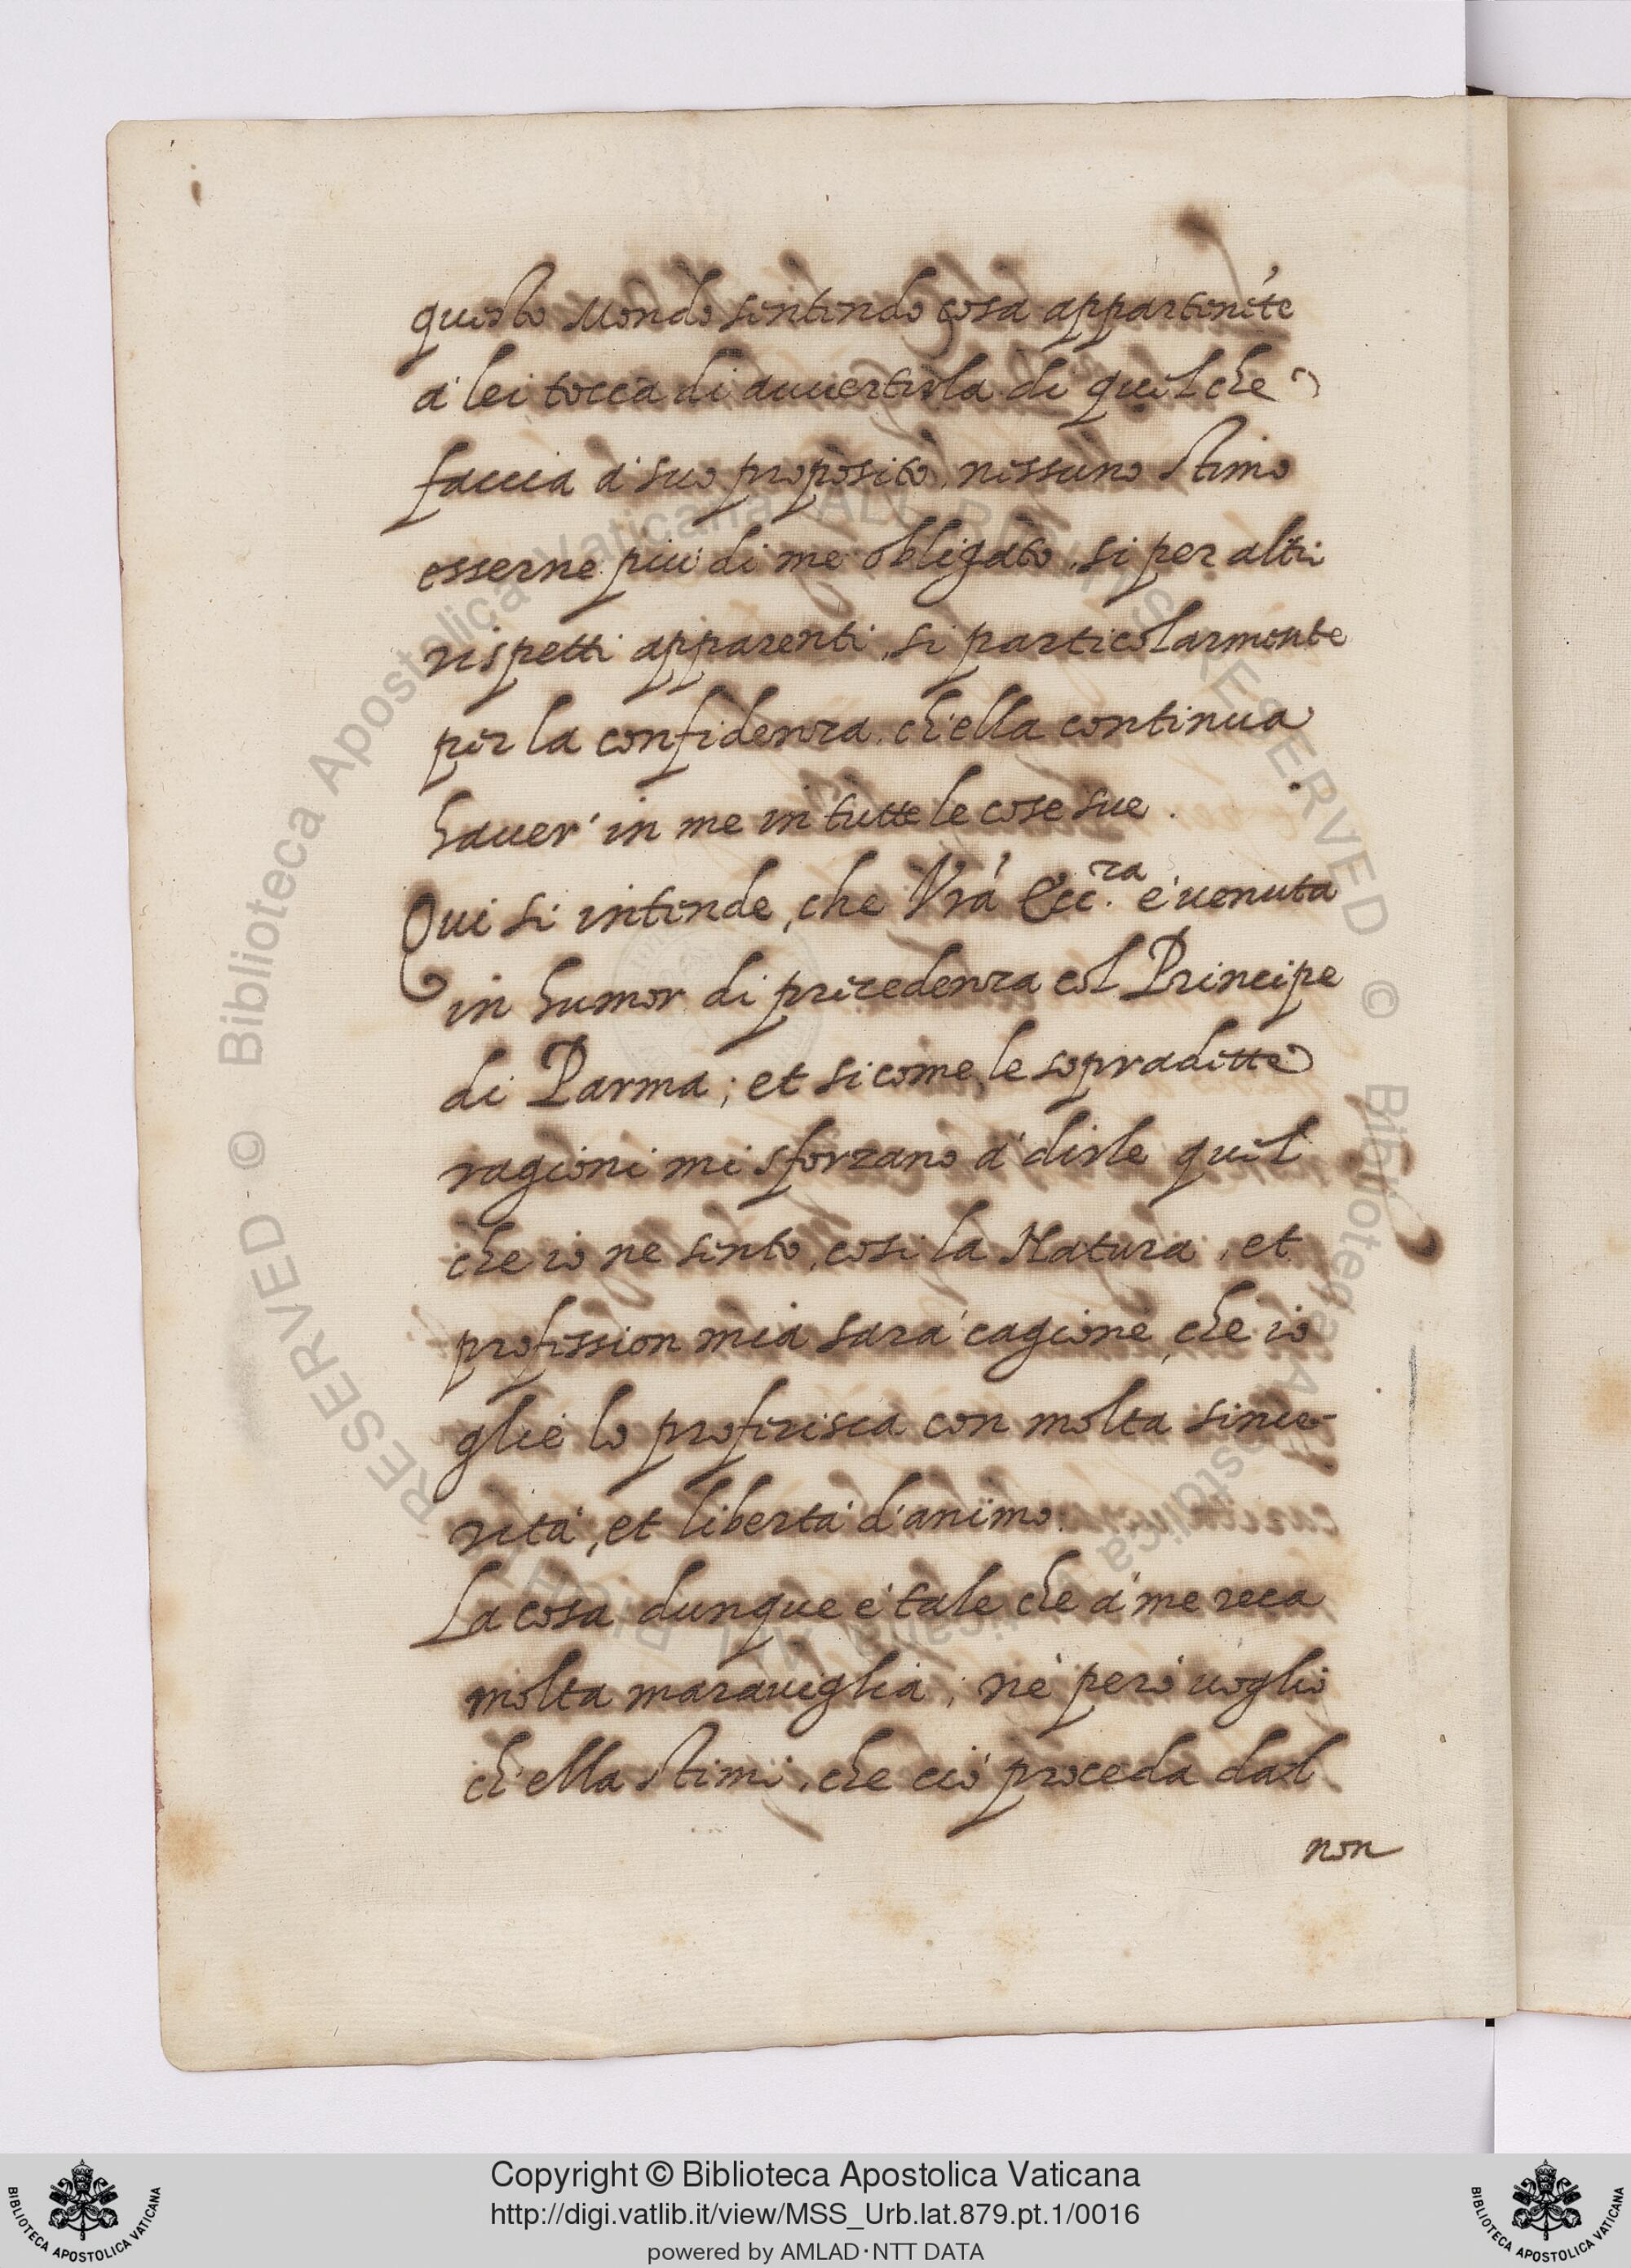 questo Mondo sentendo cosa appartenẽte
à lei tocca di auuertirla di quel che
faccia à suo proposito, nissuno stimo
esserne più di me obligato, si per altri
rispetti apparenti, si particolarmente
per la confidenza, ch'ella continua
hauer' in me in tutte le cose sue.
Qui si intende, che Vrã Ecc.ra è uenuta
in humor di precedenza col Principe
di Parma; et si come le sopradette
ragioni mi sforzano à dirle quel
che io ne sento, cosi la Natura, et
profession mia sarà cagione, che io
glie lo proferisca con molta since-
rità, et libertà d'animo.
La cosa dunque è tale che à me reca
molta marauiglia; nè però uoglio
ch'ella stimi, che ciò proceda dal
non
Copyright © Biblioteca Apostolica Vaticana
http://digi.vatlib.it/view/MSS_Urb.lat.879.pt.1/0016
powered by AMLAD·NTT DATA
BIBLIOTECA APOSTOLICA VATICANA
BIBLIOTECA APOSTOLICA VATICANA